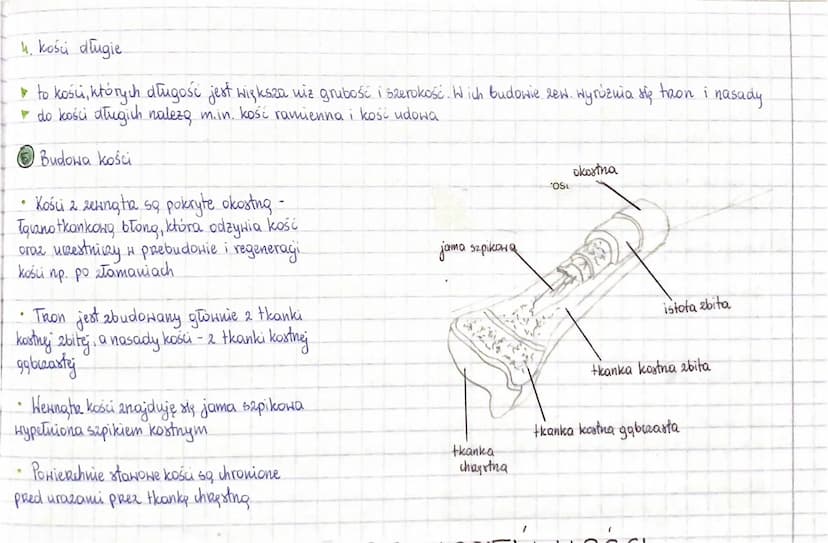 4. kości długie
to kości, których długość jest większa niż grubość i szerokość. W ich budowie zew. wyróżnia się tzon i nasady
do kości długich należą m.in. kość ramienna i kość udowa
5 Budowa kości
• Kości z zewnątrz są pokryte okostną -
łącznotkankową błoną, która odżywia kość
oraz uczestniczy w przebudowie i regeneracji
kości np. po złamaniach
• Tzon jest zbudowany głównie z tkanki
kostnej zbitej, a nasady kości - z tkanki kostnej
gąbczastej
• Wewnątrz kości znajduję się jama szpikowa
wypełniona szpikiem kostnym
• Powierzchnie stawowe kości są chronione
pred urazami przez tkankę chrzęstną
okostna
jama szpikowa
istota zbita
tkanka kostna zbita
tkanka kostna gąbczasta
tkanka
chrzęstna